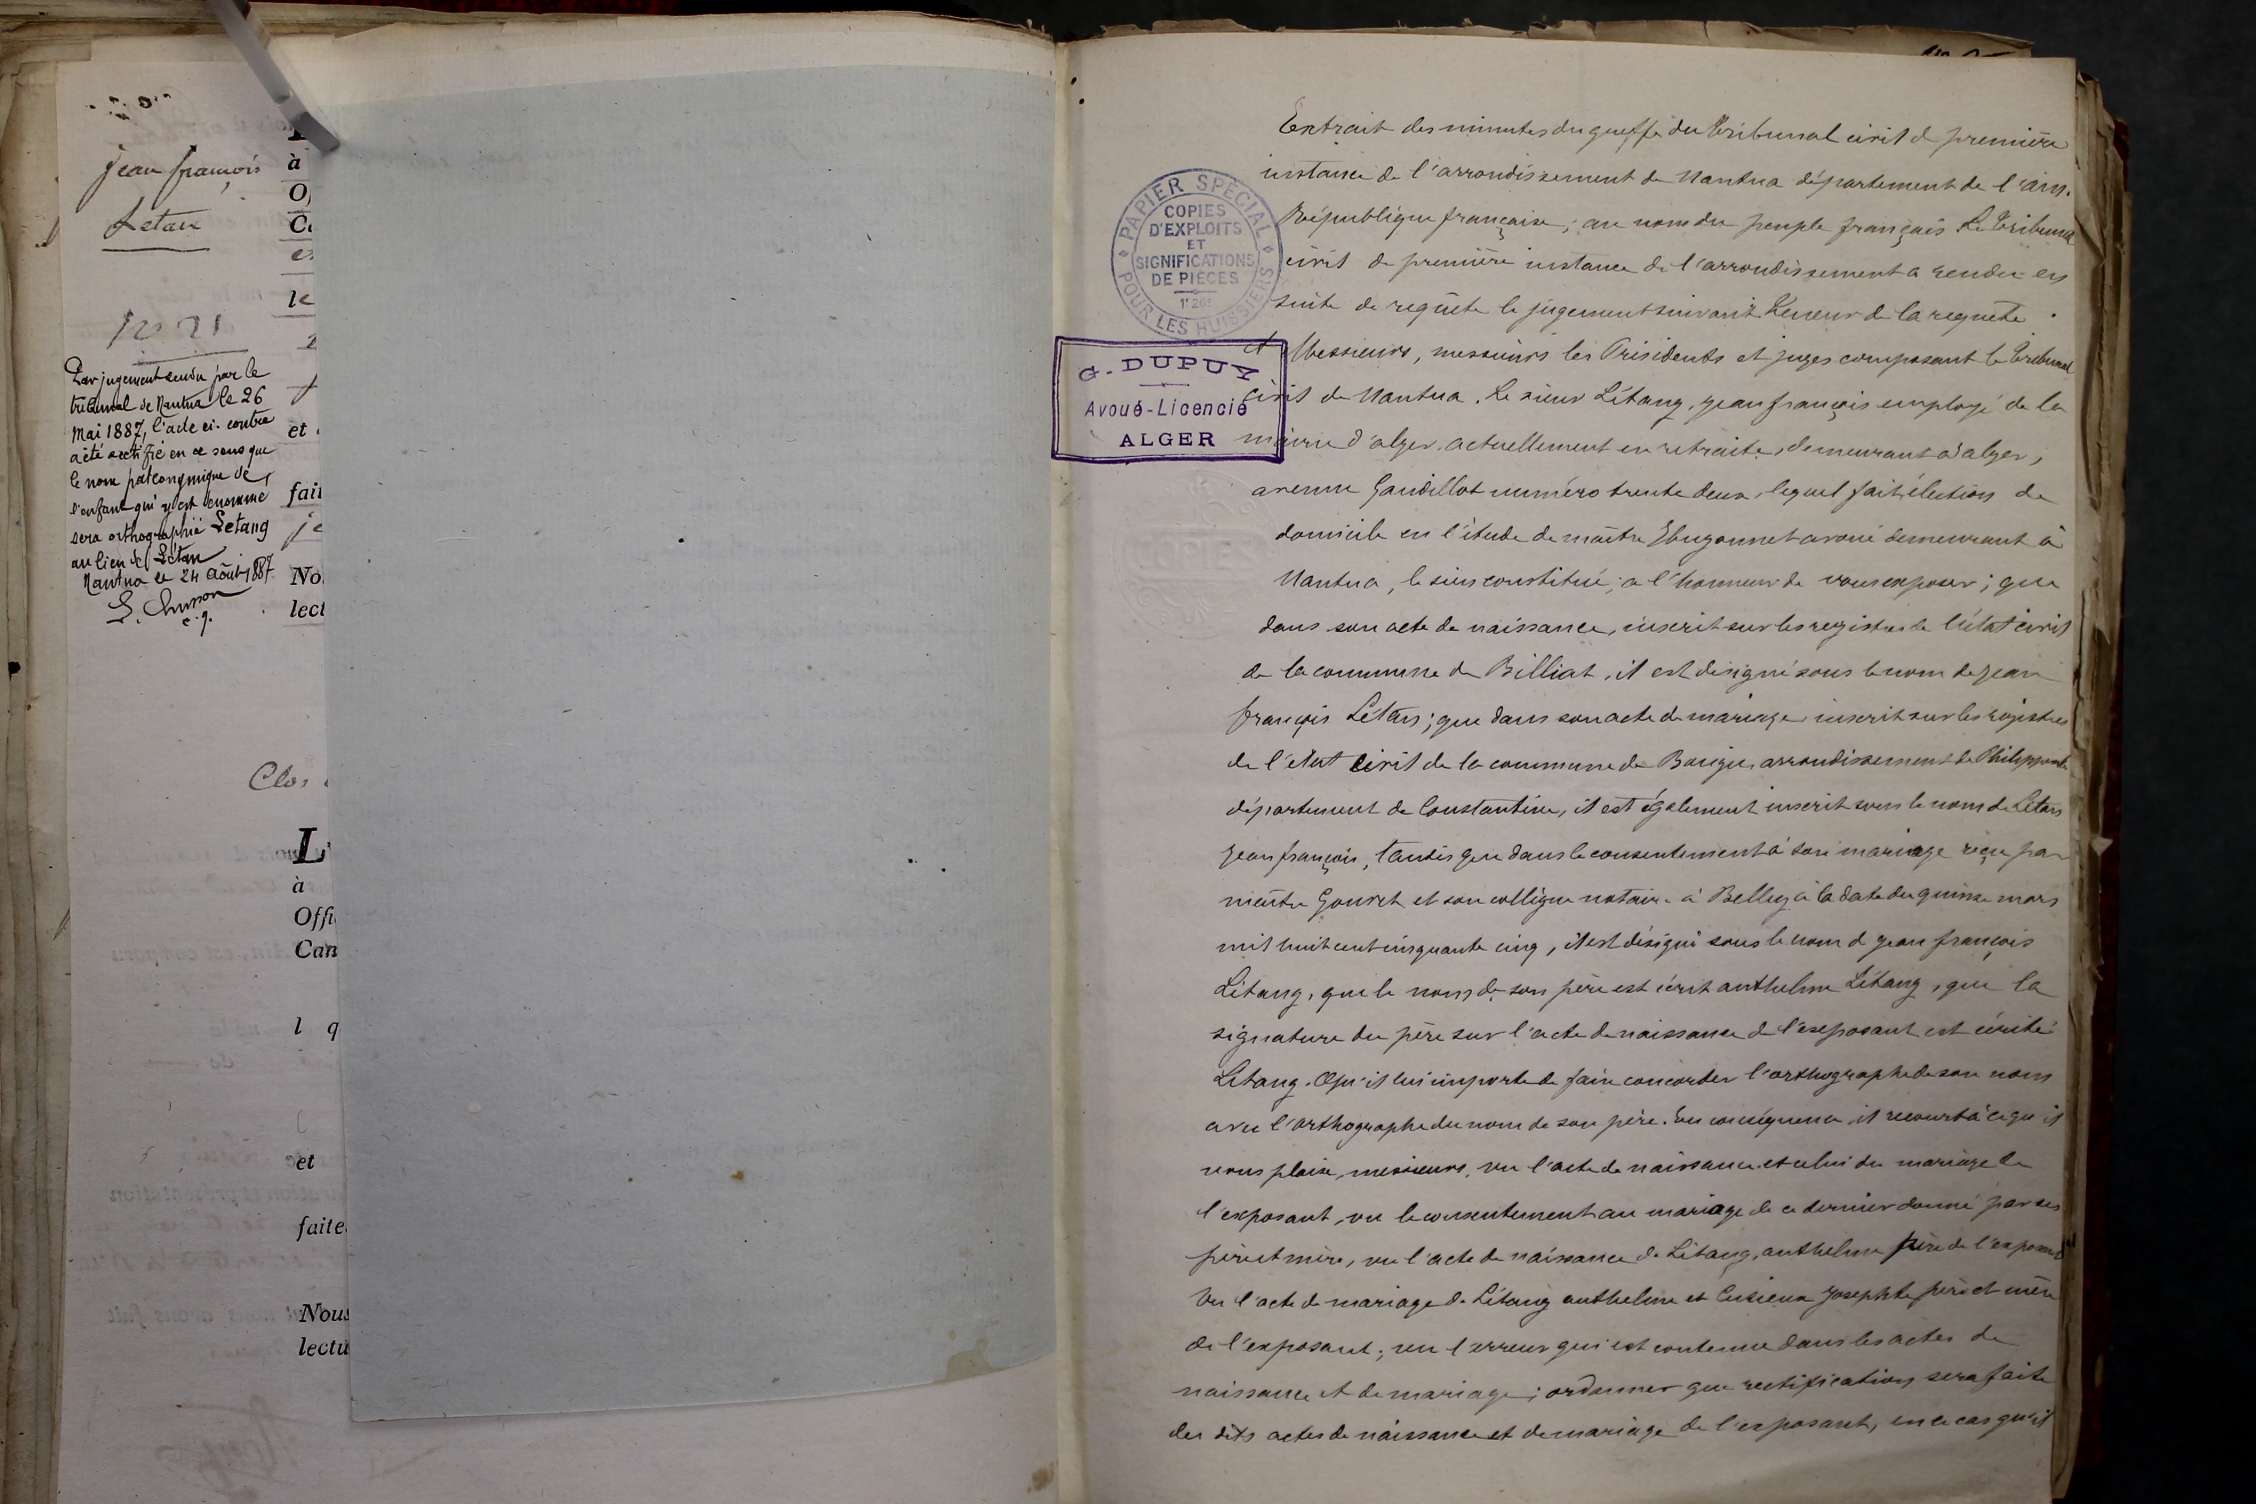 Jean françois
Letan
à
O
C
le
Par jugement rendu par le
tribunal de Nantua le 26
Mai 1887, l'acte ci-contre
a été rectifié en ce sens que
le nom patronymique de
l'enfant qui y est dénommé
sera orthographié Letang
au lieu de Létan
Nantua le 24 Août 1887
et
fait
je
No
lect
Clos
L'
à
Offi
Can
l q
et
faite
Nous
lectu
PAPIER SPÉCIAL
POUR LES HUISSIERS
COPIES
D'EXPLOITS
ET
SIGNIFICATIONS
DE PIÈCES
G. DUPUY
Avoué-Licencié
ALGER
Extrait des minutes du greffe du Tribunal civil de première
instance de l'arrondissement de Nantua département de l'ain.
République française; au nom du peuple français Le Tribunal
civil de première instance de l'arrondissement a rendu en
suite de requête le jugement suivant Teneur de la requête.
A Messieurs, messieurs les Présidents et juges composant le Tribunal
civil de Nantua. Le sieur Létang, jean françois employé de la
mairie d'alger, actuellement en retraite, demeurant à alger,
avenue Gandillot numéro trente deux, lequel fait élection de
domicile en l'étude de maître avoué demeurant à
Nantua, le sien constitué; a l'honneur de vous exposer; que
dans son acte de naissance, inscrit sur les registres de l'état civil
de la commune de Billiat, il est désigné sous le nom de jean
françois Létan; que dans son acte de mariage inscrit sur les registres
de l'état civil de la commune de Bougie, arrondissement de Philippeville
département de Constantine, il est également inscrit sous le nom de Létan
jean françois, tandis que dans le consentement à son mariage reçu par
maître et son collègue notaire à Belley à la date du quinze mars
mil huit cent cinquante cinq, il est désigné sous le nom de jean françois
Létang, que le nom de son père est écrit anthelme Létang, que la
signature du père sur l'acte de naissance de l'exposant est écrite
Létang. Qu'il lui importe de faire concorder l'orthographe de son nom
avec l'orthographe du nom de son père. En conséquence, il recourt à ce qu'il
vous plaise, messieurs, vu l'acte de naissance et celui du mariage de
l'exposant, vu le consentement au mariage de ce dernier donné par ses
père et mère, vu l'acte de naissance de Létang, anthelme père de l'exposant
Vu l'acte de mariage de Létang anthelme et Josephte père et mère
de l'exposant; vu l'erreur qui est contenue dans les actes de
naissance et de mariage; ordonner que rectification sera faite
des dits actes de naissance et de mariage de l'exposant, en ce cas qu'il